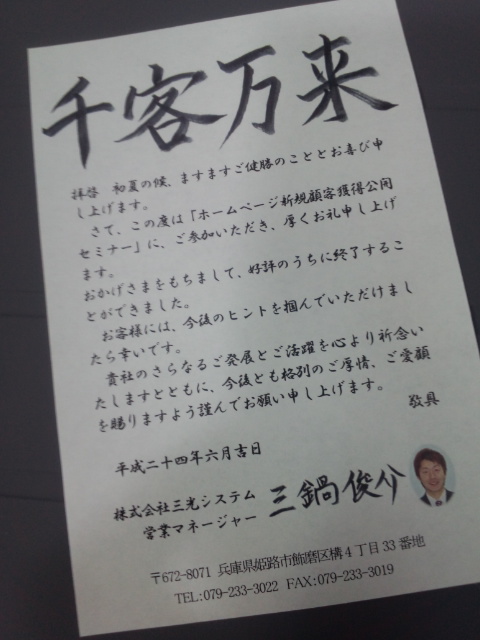 千客万来
拝啓　初夏の候、ますますご健勝のこととお喜び申
し上げます。
さて、この度は「ホームページ新規顧客獲得公開
セミナー」に、ご参加いただき、厚くお礼申し上げ
ます。
おかげさまをもちまして、好評のうちに終了するこ
とができました。
お客様には、今後のヒントを掴んでいただけまし
たら幸いです。
貴社のさらなるご発展とご活躍を心より祈念い
たしますとともに、今後とも格別のご厚情、ご愛顧
を賜りますよう謹んでお願い申し上げます。
敬具
平成二十四年六月吉日
株式会社三光システム
営業マネージャー 三鍋俊介
〒672-8071 兵庫県姫路市飾磨区構４丁目33番地
TEL:079-233-3022 FAX:079-233-3019